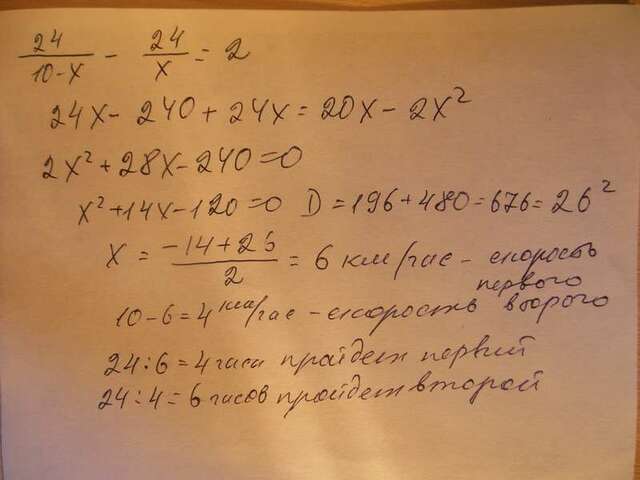 24/(10-x) - 24/x = 2
24x - 240 + 24x = 20x - 2x²
2x² + 28x - 240 = 0
x² + 14x - 120 = 0 D = 196 + 480 = 676 = 26²
x = (-14 + 26)/2 = 6 км/час - скорость первого
10 - 6 = 4 км/час - скорость второго
24 : 6 = 4 часа пройдет первый
24 : 4 = 6 часов пройдет второй